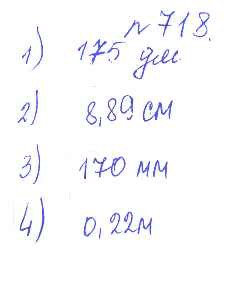 № 718.
1) 175 дм
2) 8,89 см
3) 170 мм
4) 0,22м